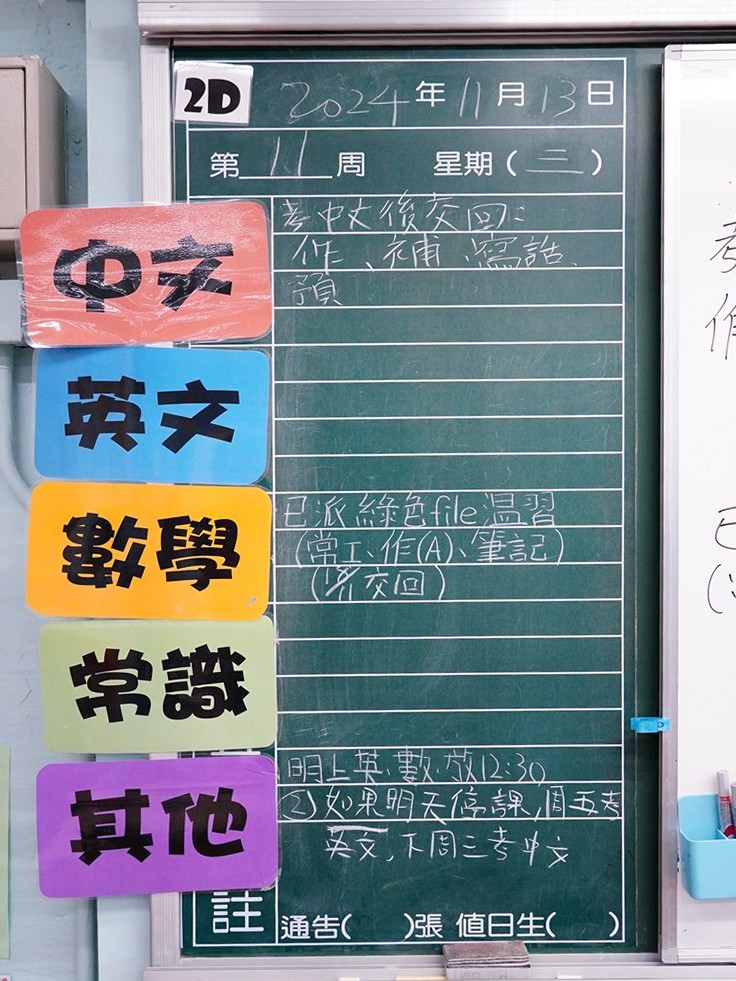 2D
2024年11月13日
第11周 星期(三)
中文
考中文後交回:
作、補、寫話、
預
英文
數學
已派綠色file温習
(常工、作(A)、筆記)
交回)
常識
其他
明上英、數、放12:30
②如果明天停課,周五考
英文,下周三考中文
註
通告( )張 值日生( )
考